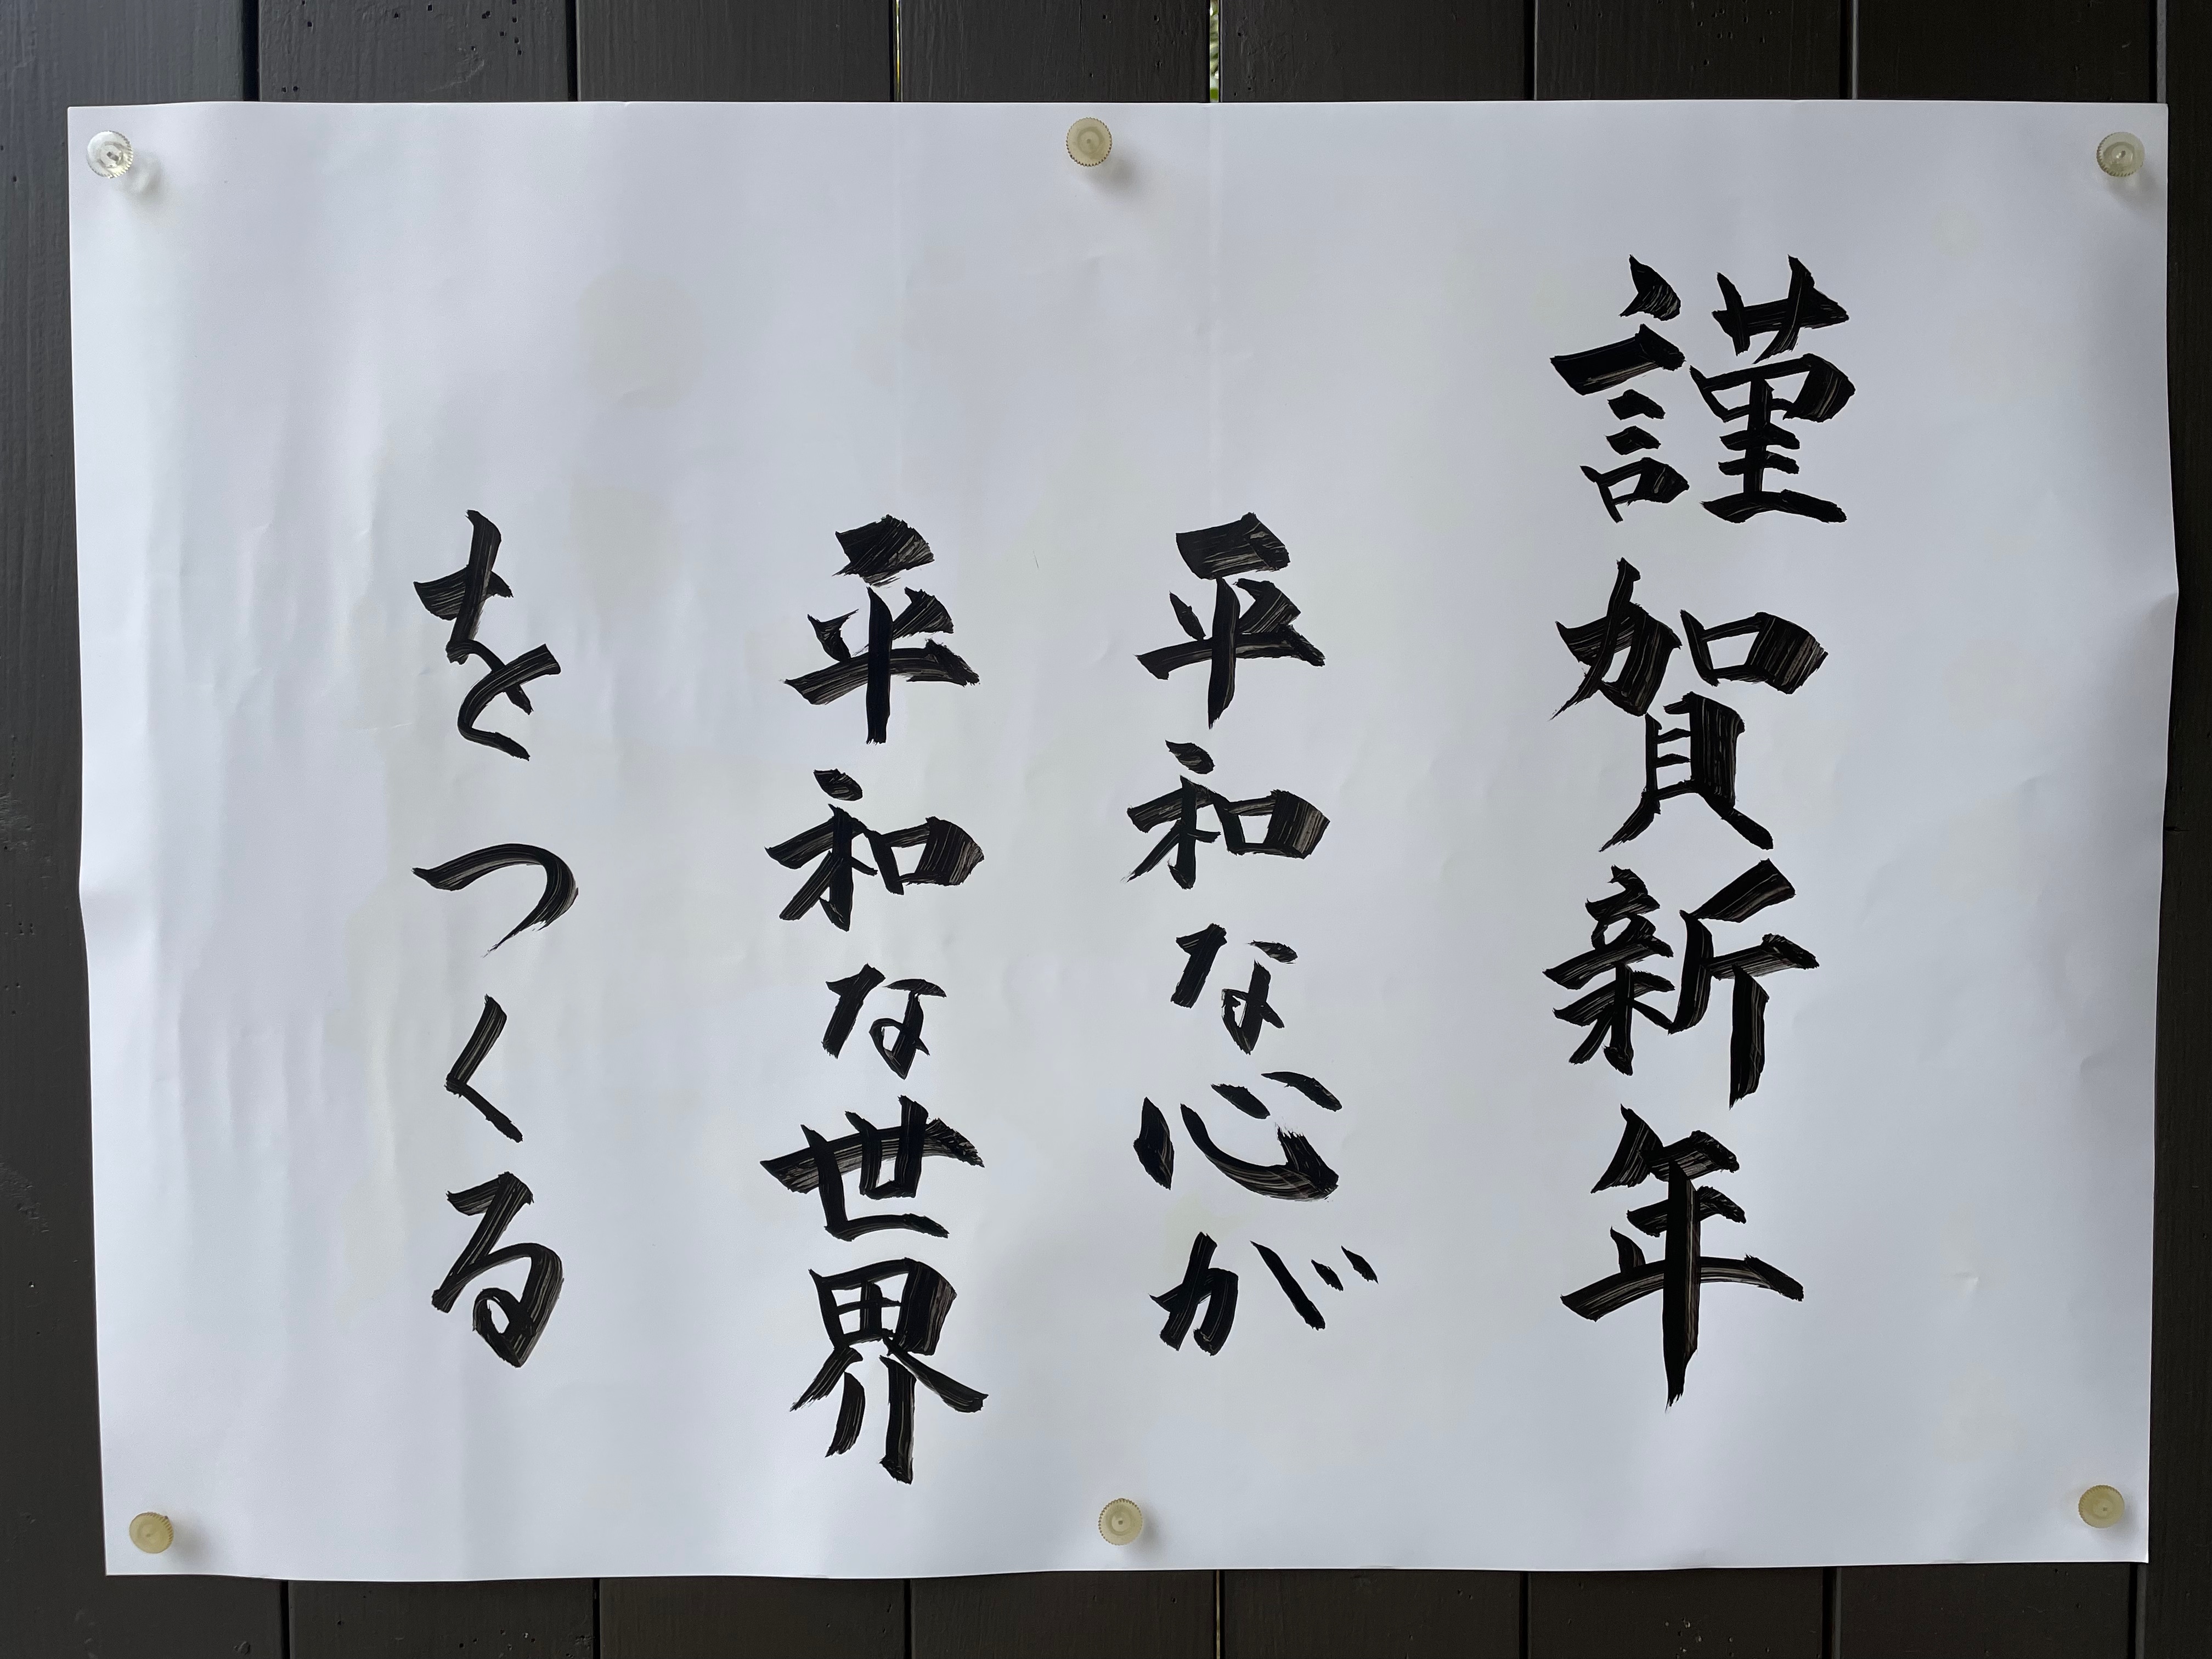 謹賀新年
平和な心が
平和な世界
をつくる